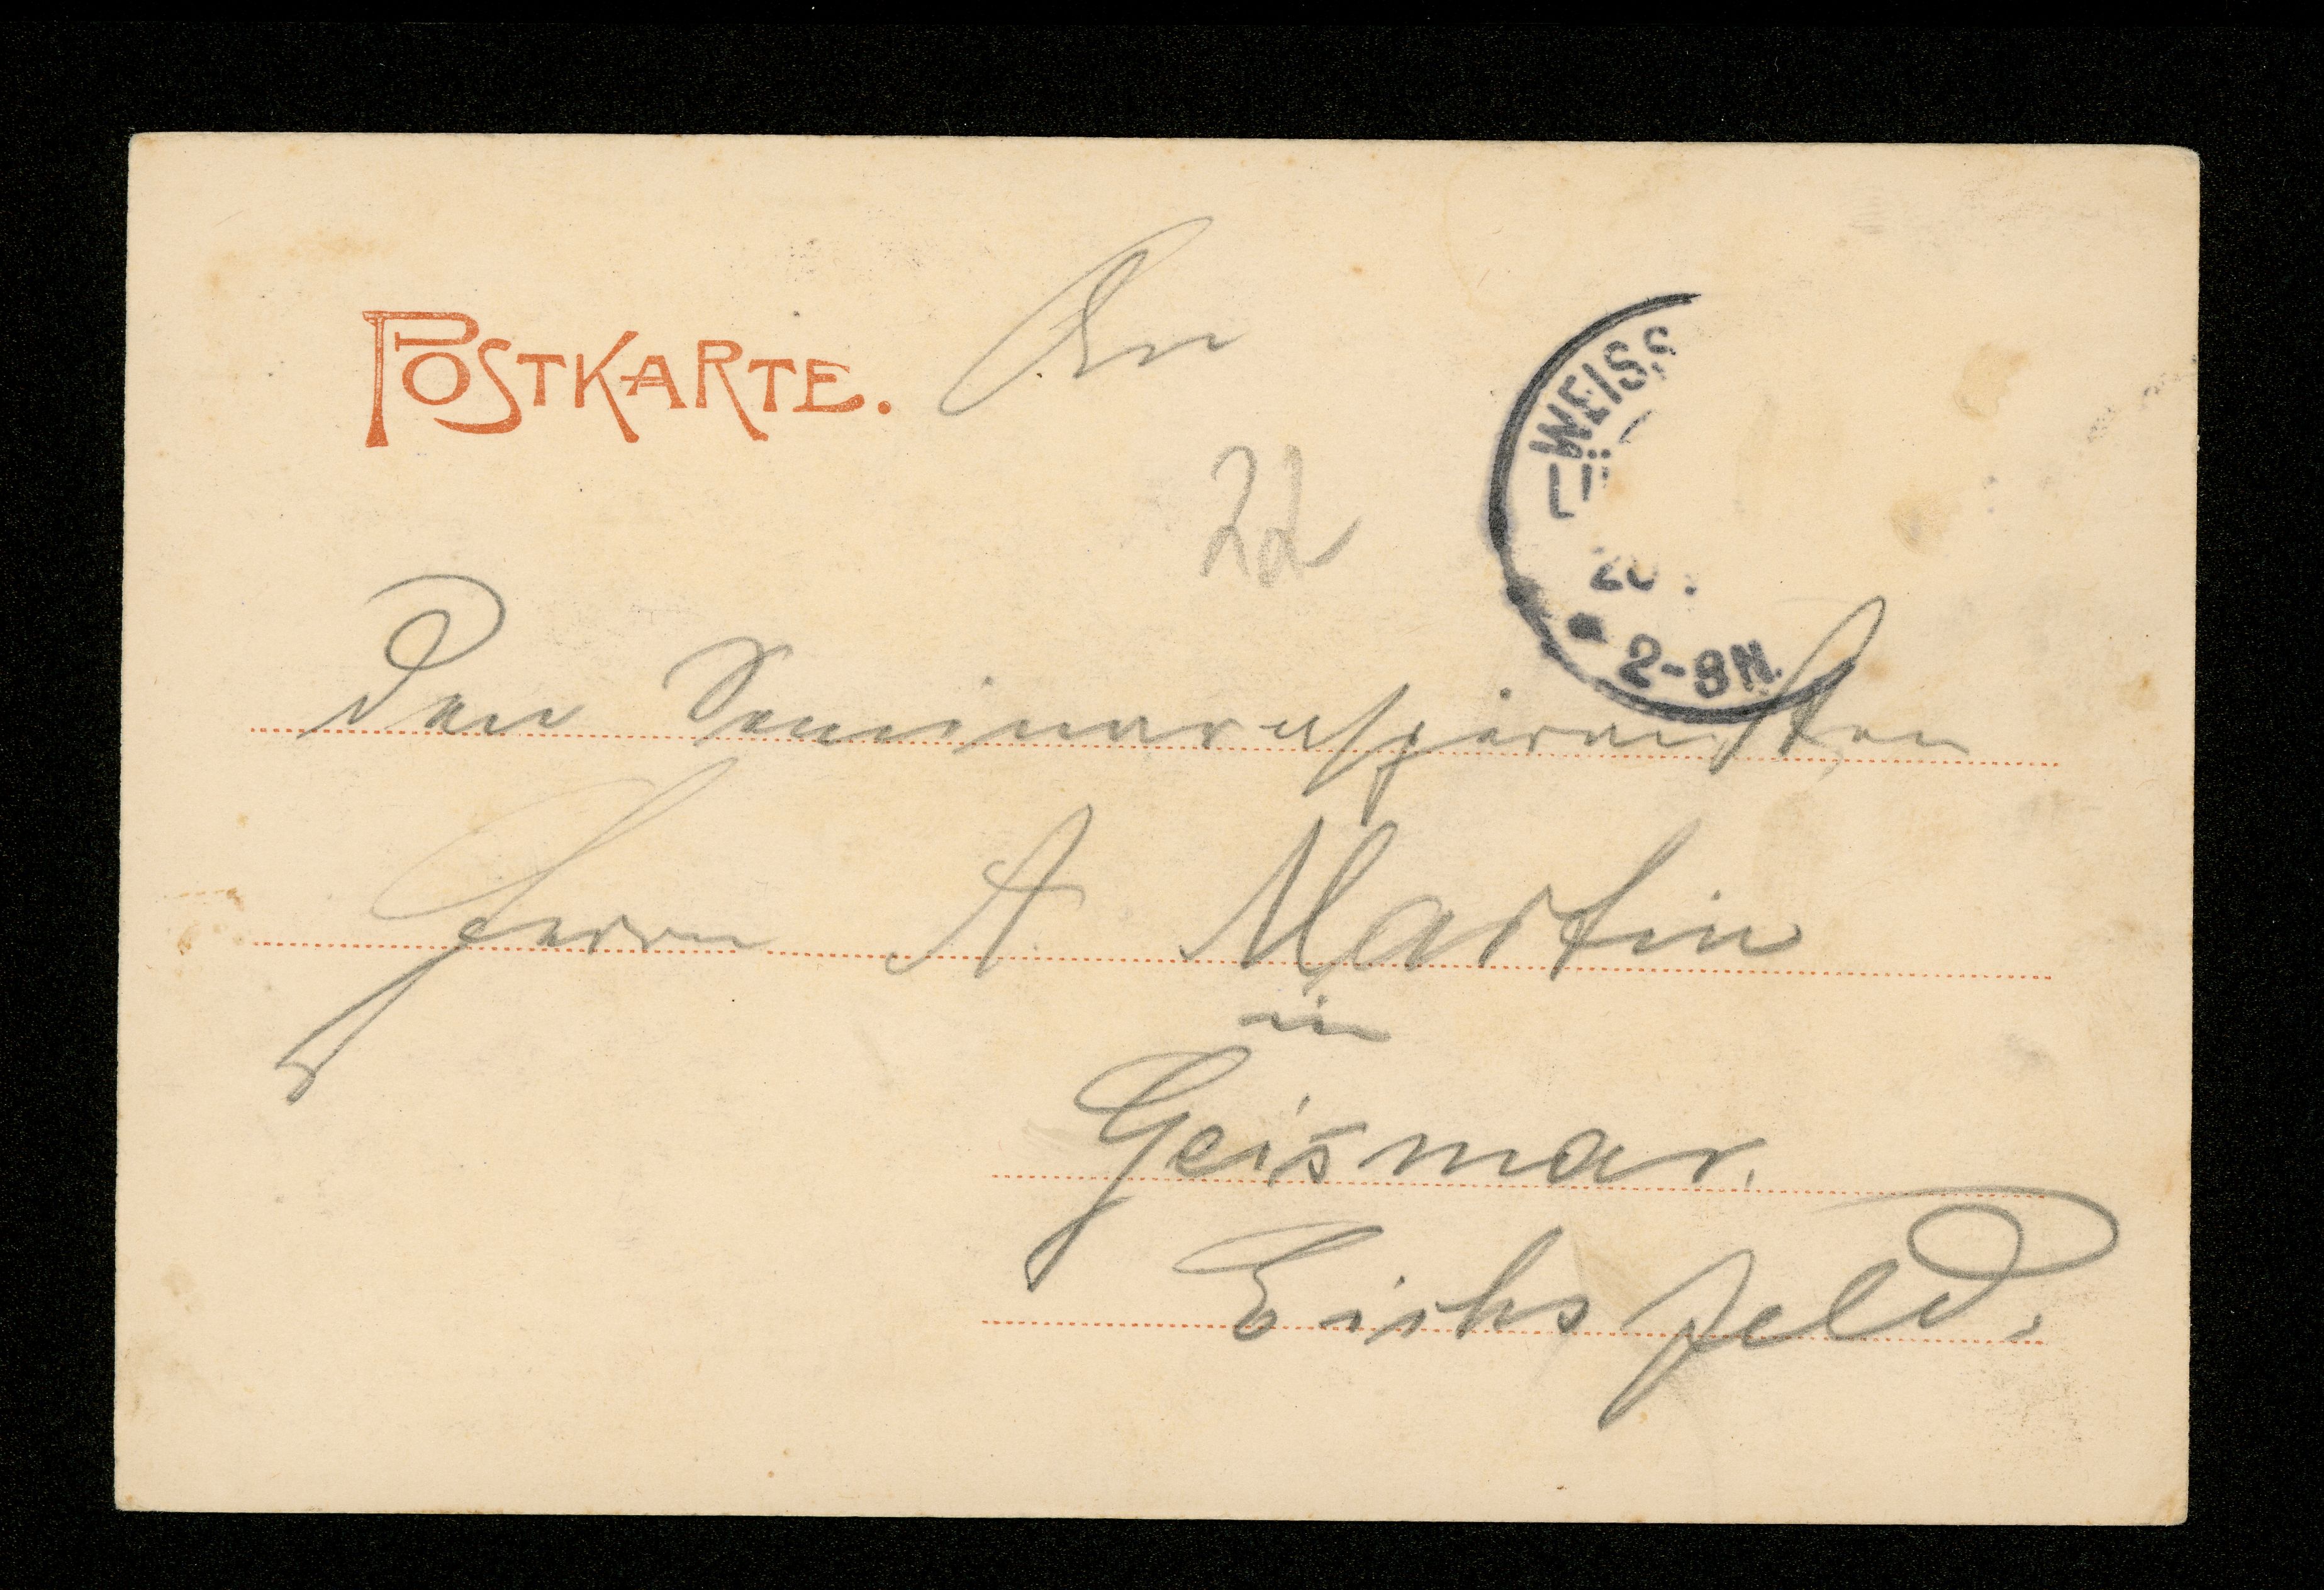 POSTKARTE.
An
22
WEISS
LÜ
20.
2-8N.
den Seminaraspiranten
Herrn A. Martin
in
Geismar.
Eichsfeld.